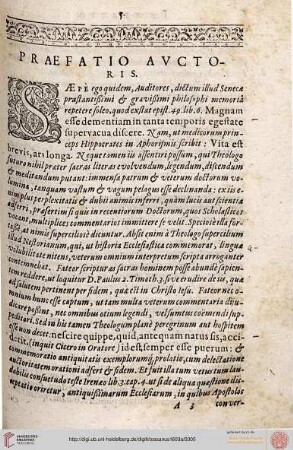 5
PRAEFATIO AVCTO-
RIS.
SÆPE ego quidem, Auditores, dictum illud Senecæ
præstantissimi & gravissimi philosophi memoriâ
repetere soleo, quod exstat epist. 49. lib. 6. Magnam
esse dementiam in tanta temporis egestate
supervacua discere. Nam, ut medicorum prin-
ceps Hippocrates in Aphorismis scribit: Vita est
brevis, ars longa. Neque tamen iis assentiri possum, qui Theologo
futuro nihil præter sacras literas evolvendum, legendum, discendum
& meditandum putant: immensa patrum & veterum doctorum vo-
lumina, tanquam vastum & vagum pelagus esse declinanda: ex iis e-
nim plus perplexitatis & dubii animis inferri, quàm lucis aut scientiæ
adferri, præsertim si quis in recentiorum Doctorum, quos Scholasticos
vocant, multiplices commentarios immittere se velit. Speciosa illa for-
tasse, at nimis superbè dicuntur. Absit enim à Theologo supercilium
illud Nestorianum, qui, ut historia Ecclesiastica commemorat, lingua
volubilitate nitens, veterum omnium interpretum scripta arroganter
contemnebat. Fateor scripturas sacras hominem posse abundè sapien-
tem reddere, ut loquitur D. Paulus 2. Timoth. 3. sive erudire de iis, quæ
ad salutem pertinent per fidem, quæ est in Christo Iesu. Fateor
nium hunc esse captum, ut tam multa veterum commentaria diiu-
dicare possint, nec omnibus otium legendi, vel sumtus coëmendi sup-
peditari. Sed in his tamen Theologum planè peregrinum aut hospitem
esse non decet: nescire quippe, quid, antequam natus sis, acci-
derit, (inquit Cicero in Oratore) id est semper esse puerum: &
commemoratio antiquitatis exemplorumque prolatio, cum delectatione
auctoritatem orationi adfert & fidem. Et fuit illa tum vetus tum lau-
dabilis consuetudo teste Irenæo lib. 3. cap. 4. ut si de aliqua quæstione dis-
ceptatio oriretur, antiquissimarum Ecclesiarum, in quibus Apostolos
A 3 conver-
http://digi.ub.uni-heidelberg.de/diglit/